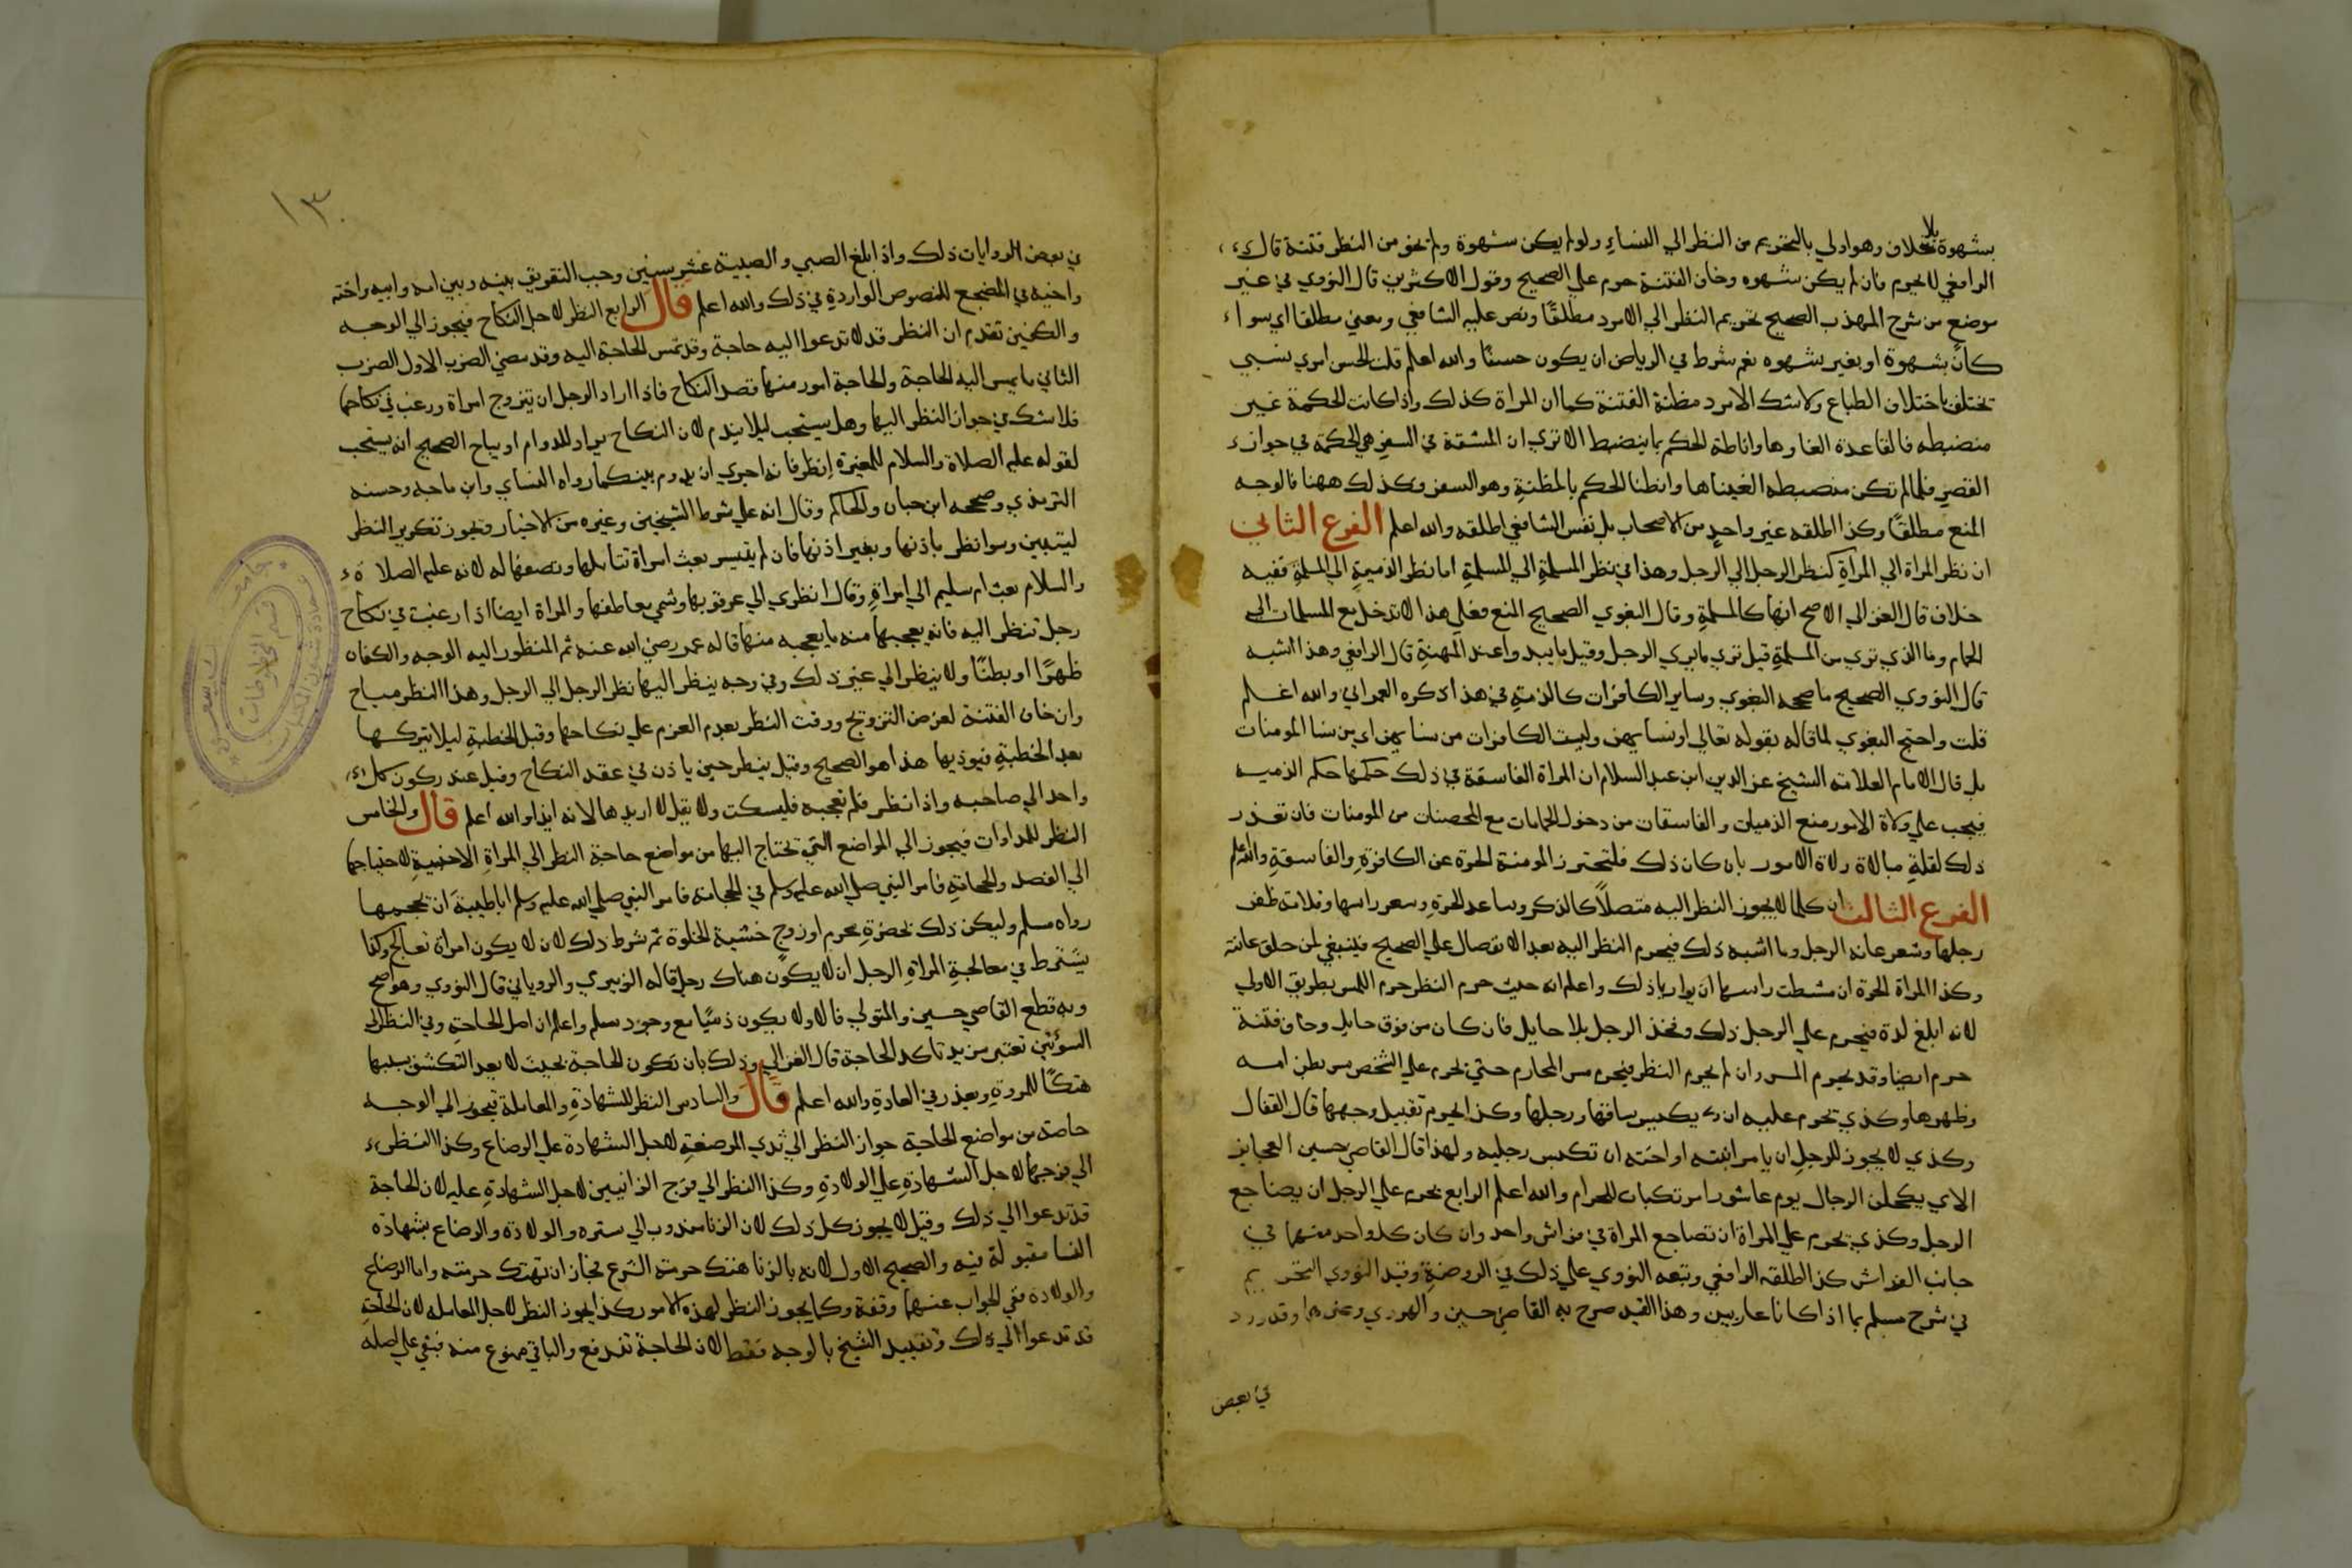 بشهوة بلا خلاف وهو اولي بالتحريم من النظر الي النساء ولو لم يكن بشهوة ولم يخف من النظر فتنة قال
الرافعي لا يحرم فان لم يكن بشهوه وخاف الفتنة حرم علي الصحيح وقول الاكثرين قال النووي في غير
موضع من شرح المهذب الصحيح تحريم النظر الي الامرد مطلقًا ونص عليه الشافعي ومعني مطلقا اي سواء
كان بشهوة او بغير بشهوه نعم شرط في الرياض ان يكون حسنًا والله اعلم قلت الحسن امري نسبي
تختلف باختلاف الطباع ولا شك الامرد مظنة الفتنة كما ان المراة كذلك واذا كانت الحكمة غير
منضبطه فالقاعدة الغاوها واناطة الحكم بما ينضبط الا تري ان المشقة في السفر هي الحكمة في جواز
القصر فلما لم تكن منضبطه الغيناها وانطنا الحكم بالمظنةِ وهو السفر وكذلك ههنا فالوجه
المنع مطلقًا وكذا اطلقه غير واحدٍ من الاصحاب بل نفس الشافعي اطلقه والله اعلم الفرع الثاني
ان نظر المراة الي المراةِ كنظر الرجل الي الرجل وهذا في نظر المسلمةِ الي المسلمةِ اما نظر الذميةِ الي المسلمةِ ففيه
خلاف قال الغزالي الاصح انها كالمسلمةِ وقال البغوي الصحيح المنع فعلي هذا لا تدخل مع المسلمات الي
الحمام وما الذي تري من المسلمةِ قيل تري ما يري الرجل وقيل ما يبدوا عند المهنةِ قال الرافعي وهذا اشبه
قال النووي الصحيح ما صححه البغوي وساير الكافرات كالذميةِ في هذا ذكره العمراني والله اعلم
قلت واحتج البغوي لما قاله بقوله تعالي او نسايهن وليست الكافرات من نسايهن اي من نسا المومنات
بل قال الامام العلامه الشيخ عز الدين ابن عبد السلام ان المراة الفاسقة في ذلك حكمها حكم الذميه
فيجب علي ولاة الامور منع الذميات والفاسقات من دخول الحمامات مع المحصنات من المومنات فان تعذر
ذلك لقلةِ مبالاة ولاة الامور بان كان ذلك فلتحترز المومنة الحرة عن الكافرةِ والفاسقةِ والله اعلم
الفرع الثالث ان كلما لا يجوز النظر اليه متصلاً كالذكر وساعد الحرةِ وشعر راسها وقلامة ظفر
رجلها وشعر عانة الرجل وما اشبه ذلك فيحرم النظر اليه بعد الانفصال علي الصحيح فينبغي لمن حلق عانته
وكذا المراة الحرة ان مشطت راسها ان يواريا ذلك واعلم انه حيث حرم النظر حرم اللمس بطريق الاولي
لانه ابلغ لذة فيحرم علي الرجل ذلك وفخذ الرجل بلا حايل فان كان من فوق حايلٍ وخاف فتنة
حرم ايضا وقد يحرم المس وان لم يحرم النظر فيحرم مس المحارم حتي يحرم علي الشخص مس بطن امه
وظهرها وكذي تحرم عليه ان يكبس ساقها ورجلها وكذا يحرم تقبيل وجهها قال القفال
وكذي لا يجوز للرجلِ ان يامر ابنته او اخته ان تكبس رجليه ولهذا قال القاضي حسين العجايز
الاي يكحلن الرجال يوم عاشورا مرتكبات للحرام والله اعلم الرابع يحرم علي الرجل ان يضاجع
الرجل وكذي يحرم علي المراة ان تضاجع المراة في فراش واحد وان كان كل واحد منهما في
جانب الفراش كذا اطلقه الرافعي وتبعه النووي علي ذلك في الروضةِ وقيد النووي التحريم
في شرح مسلم بما اذا كانا عاريين وهذا القيد صرح به القاضي حسين والهروي وغيرهما وقد ورد
في بعض
١٣
في بعض الروايات ذلك واذا بلغ الصبي والصبية عشر سنين وجب التفريق بينه وبين امه وابيه واخته
واخيه في المضجع للنصوص الواردةِ في ذلك والله اعلم قال الرابع النظر لاجل النكاح فيجوز الي الوجه
والكفين تقدم ان النظر قد لا تدعوا اليه حاجة وقد تمس الحاجة اليه وقد مضي الضرب الاول الضرب
الثاني ما يمس اليه الحاجة والحاجة امور منها قصد النكاح فاذا اراد الرجل ان يتزوج امراة ورغب في نكاحها
فلا شك في جواز النظر اليها وهل يستحب ليلا يندم لان النكاح يراد للدوام او يباح الصحيح انه يستحب
لقوله عليه الصلاة والسلام للمغيرة اِنظر فانه احري ان يدوم بينكما رواه النساي وابن ماجه وحسنه
الترمذي وصححه ابن حبان والحاكم وقال انه علي شرط الشيخين وغيره من الاخبار ويجوز تكرير النظر
ليتبين وسوا نظر باذنها وبغير اذنها فان لم يتيسر بعث امراة تتاملها وتصفها له لانه عليه الصلاة
والسلام بعث ام سليم الي امراةٍ وقال انظري الي عرقوبها وشمي معاطفها والمراة ايضا اذا رغبت في نكاح
رجل تنظر اليه فانه يعجبها منه ما يعجبه منها قاله عمر رضي الله عنه ثم المنظور اليه الوجه والكفان
ظهرًا او بطنًا ولا ينظر الي غير ذلك وفي وجه ينظر اليها نظر الرجل الي الرجل وهذا النظر مباح
وان خاف الفتنة لغرض التزويج ووقت النظر بعد العزم علي نكاحها وقبل الخطبةِ ليلا يتركها
بعد الخطبةِ فيوذيها هذا هو الصحيح وقيل ينظر حين ياذن في عقد النكاح وقيل عند ركون كل
واحد الي صاحبه واذا نظر فلم تعجبه فليسكت ولا يقل لا اريدها لانه ايذا والله اعلم قال والخامس
النظر للمداوات فيجوز الي المواضع التي تحتاج اليها من مواضع حاجة النظر الي المراةِ الاجنبيةِ لاحتياجها
الي الفصد والحجامةِ فامر النبي صلي الله عليه وسلم في الحجامة فامر النبي صلي الله عليه وسلم ابا طيبةَ ان تحجمها
رواه مسلم وليكن ذلك بحضرةِ محرم او زوج خشية الخلوة ثم شرط ذلك لان لا يكون امراة تعالج وكما
يشترط في معالجةِ المراةِ الرجل ان لا يكون هناك رجل قاله الزبيري والروياني قال النووي وهو اصح
وبه قطع القاضي حسين والمتولي قالا ولا يكون ذميًا مع وجود مسلم واعلم ان اصل الحاجةِ وفي النظر الي
السوءتين تعتبر مزيد تاكد الحاجة قال الغزالي وذلك بان تكون الحاجة بحيث لا يعد التكشف بسببها
هتكًا للمروةِ ويعذر في العادةِ والله اعلم قال والسادس النظر للشهادةِ والمعاملة فيجوز الي الوجه
خاصة من مواضع الحاجة جواز النظر الي ثدي المرضعةِ لاجل الشهادة علي الرضاع وكذا النظر
الي فرجها لاجل الشهادةِ علي الولادةِ وكذا النظر الي فرج الزانيين لاجل الشهادةِ عليه لان الحاجة
قد تدعوا الي ذلك وقيل لا يجوز كل ذلك لان الزنا مندوب الي ستره والولادة والرضاع بشهادة
النسا مقبولة فيه والصحيح الاول لانه بالزنا هتك حرمة الشرع فجاز ان تهتك حرمته واما الرضاع
والولادة ففي الجواب عنهما وقفة وكما يجوز النظر لهذه الامور كذا يجوز النظر لاجل المعامله لان الحاجة
قد تدعوا الي ذلك وتقييد الشيخ بالوجه فقط لان الحاجة تندفع والباقي ممنوع منه فبقي علي اصله
قسم المخطوطات